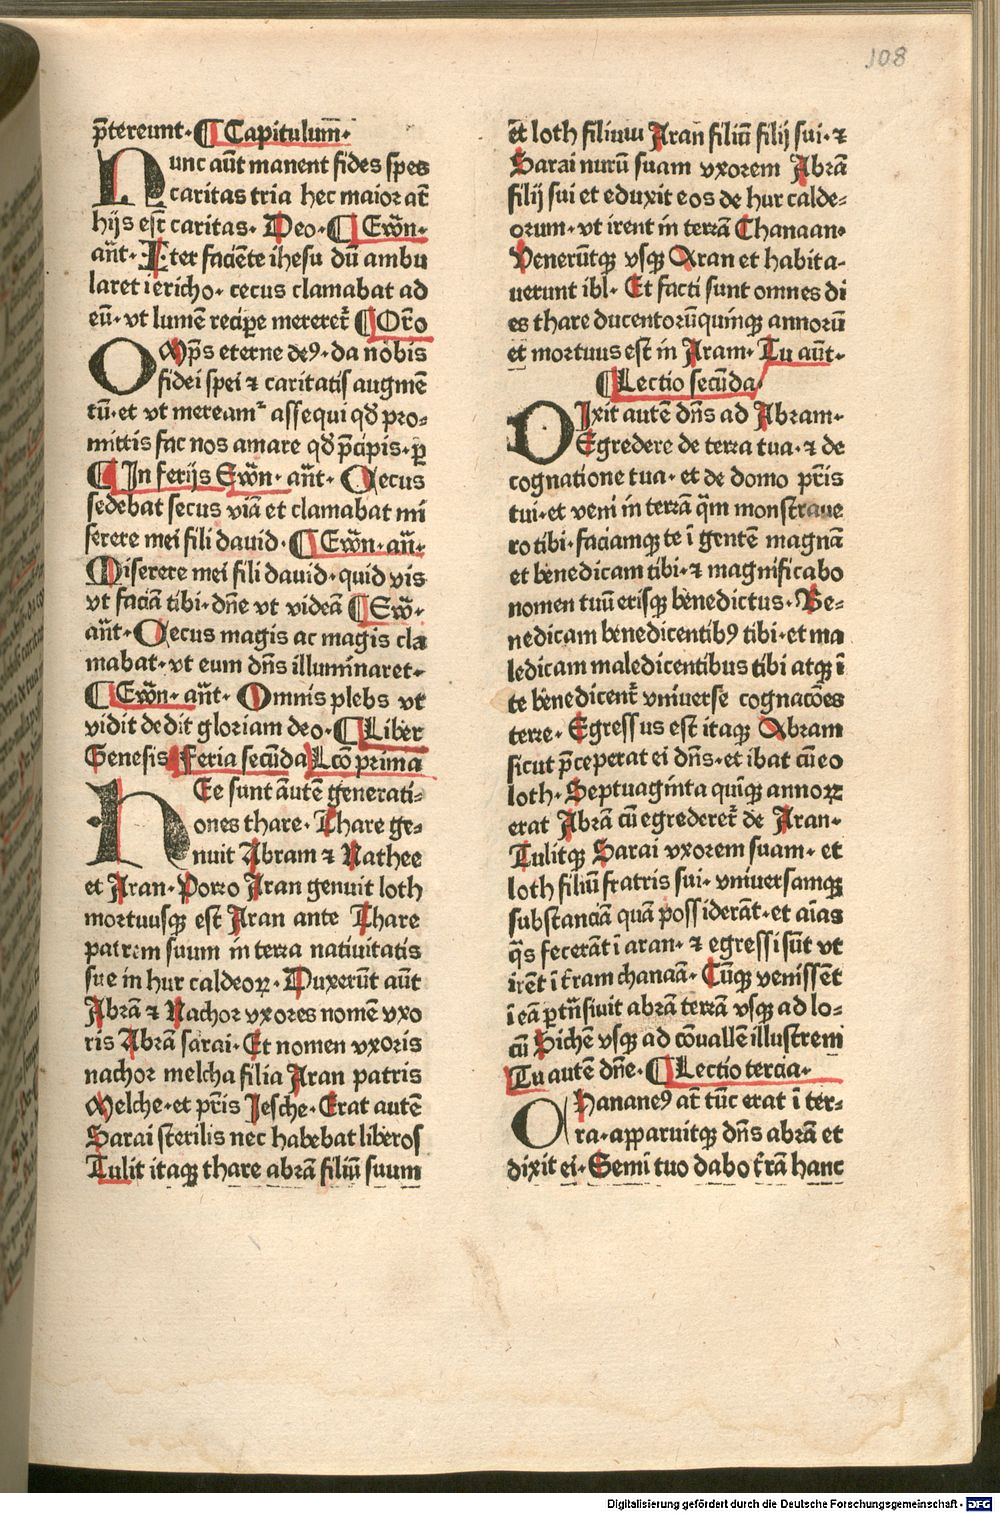 108
p̄tereunt· ¶ Capitulum̄·
Nunc aūt manent fides spes
caritas tria hec maior at̄
hijs est caritas· Deo· ¶ Ewn̄·
an̄t· Iter faciēte ihesu dū ambu
laret iericho· cecus clamabat ad
eū· vt lumē recipe mereret̄ ¶ Or̄o
OMp̄s eterne deꝰ· da nobis
fidei spei ⁊ caritatis augmē
tū· et vt mereamᷣ assequi qd̄ pro-
mittis fac nos amare qd̄ p̄cipis· ꝑ
¶ In ferijs Ewn̄· an̄t· Cecus
sedebat secus viā et clamabat mi
serere mei fili dauid· ¶ Ewn̄· an̄·
Miserere mei fili dauid· quid vis
vt faciā tibi· dn̄e vt videā ¶ Ew̄·
an̄t· Cecus magis ac magis cla
mabat· vt eum dn̄s illuminaret·
¶ Ewn̄· an̄t· Omnis plebs vt
vidit dedit gloriam deo· ¶ Liber
Genesis Feria secūda Lcō prima
HEe sunt autē generati-
ones thare· Thare ge-
nuit Abram ⁊ Nathee
et Aran· Porro Aran genuit loth
mortuusqꝫ est Aran ante Thare
patrem suum in terra natiuitatis
sue in hur caldeoꝝ· Duxerūt aūt
Abrā ⁊ Nachor vxores nomē vxo
ris Abrā sarai· Et nomen vxoris
nachor melcha filia Aran patris
Melche· et p̄ris Jesche· Erat autē
Sarai sterilis nec habebat liberos
Tulit itaqꝫ thare abrā filiū suum
et loth filium Aran filiū filij sui· ⁊
Sarai nurū suam vxorem Abrā
filij sui et eduxit eos de hur calde-
orum· vt irent in terrā Chanaan·
Venerūtqꝫ vsqꝫ Aran et habita-
uerunt ibI· Et facti sunt omnes di
es thare ducentorūquinqꝫ annorū
et mortuus est in Aram· Tu aūt·
¶ Lectio secūda
DIxit autē dn̄s ad Abram·
Egredere de terra tua· ⁊ de
cognatione tua· et de domo p̄ris
tui· et veni in terrā qm̄ monstraue
ro tibi· faciamqꝫ te ī gentē magnā
et benedicam tibi· ⁊ magnificabo
nomen tuū erisqꝫ benedictus· Be-
nedicam benedicentibꝰ tibi· et ma
ledicam maledicentibus tibi atqꝫ ī
te benedicent̄ vniuerse cognacōes
terre· Egressus est itaqꝫ Abram
sicut p̄ceperat ei dn̄s· et ibat cū eo
loth· Septuaginta quinqꝫ annoꝝ
erat Abrā cū egrederet̄ de Aran·
Tulitqꝫ Sarai vxorem suam· et
loth filiū fratris sui· vniuersamqꝫ
substanciā quā possiderāt· et aīas
q̄s fecerāt ī aran· ⁊ egressi sūt vt
irēt ī t̄ram chanaā· Cūqꝫ venissēt
ī eā ꝑtn̄siuit abrā terrā vsqꝫ ad lo-
cū Sichē vsqꝫ ad cōuallē illustrem
Tu autem dn̄e· ¶ Lectio tercia·
CHananeꝰ at̄ tūc erat ī ter-
ra· apparuitqꝫ dn̄s abrā et
dixit ei· Semi tuo dabo t̄rā hanc
Digitalisierung gefördert durch die Deutsche Forschungsgemeinschaft - DFG